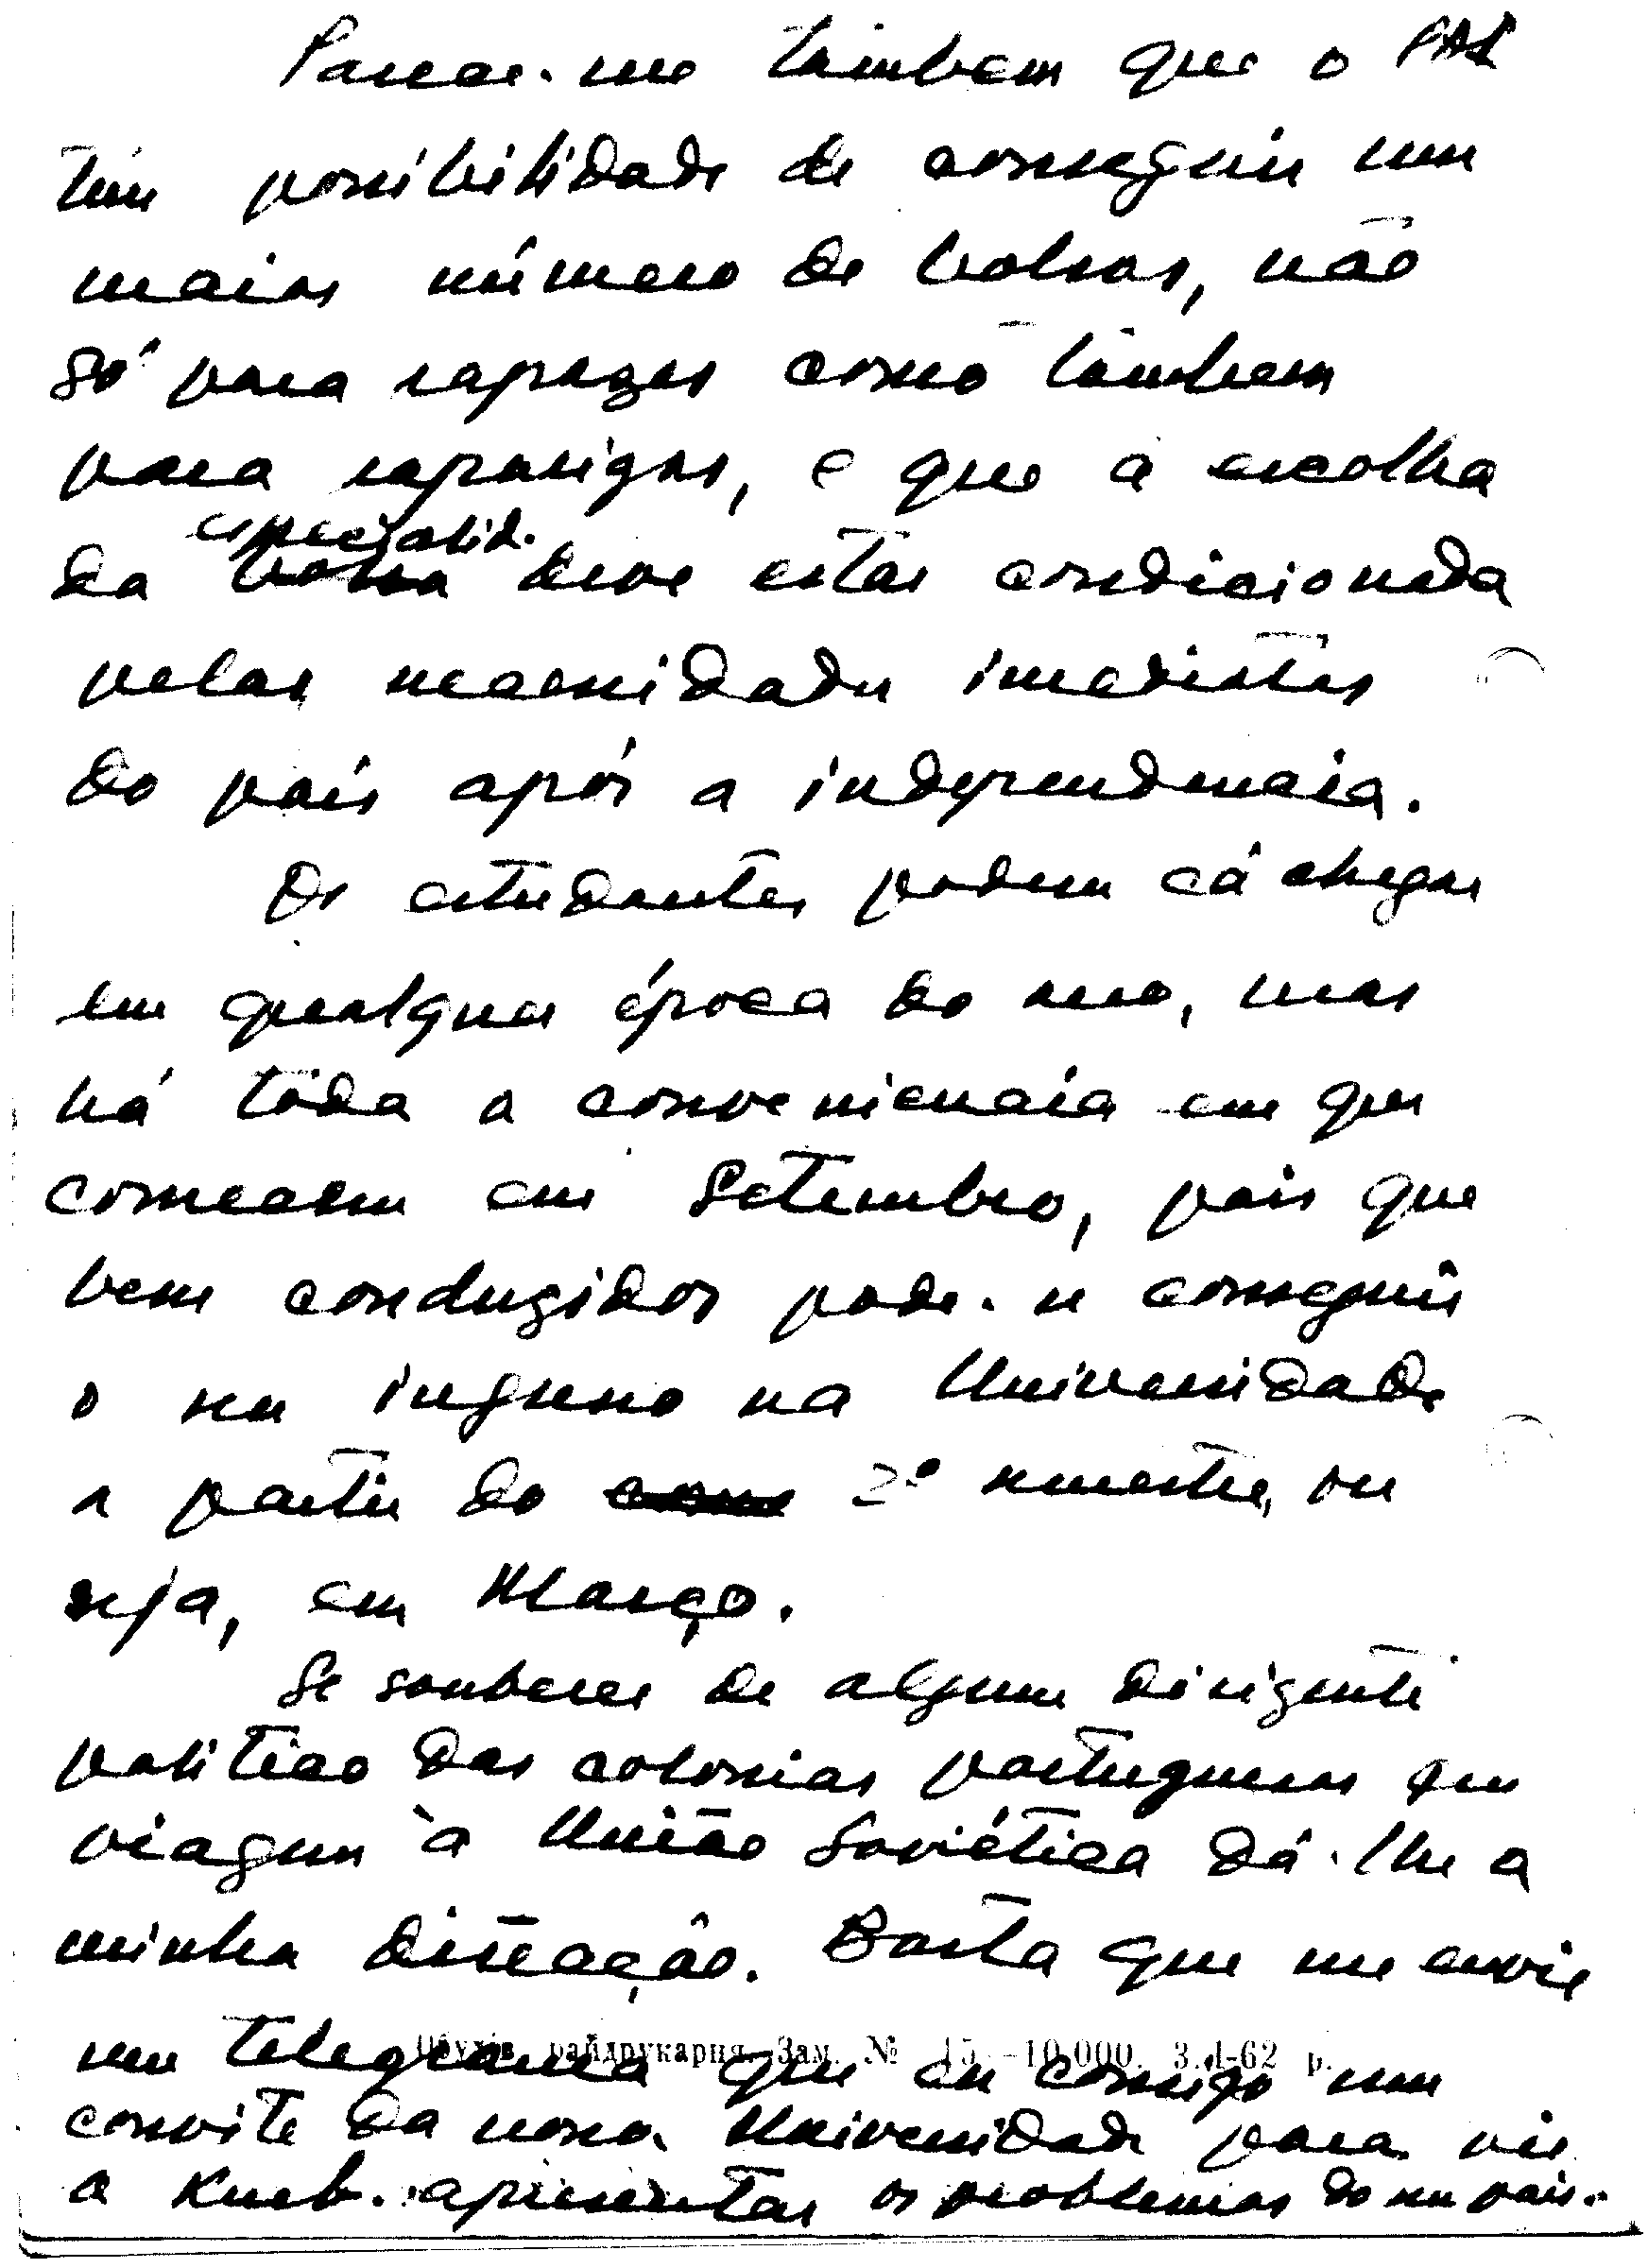 Parece-me tambem que o
tem possibilidade de conseguir um
maior número de bolsas, não
só para rapazes como tambem
para raparigas, e que a escolha
especialid.
da bolsa deve estar condicionada
pelas necessidades imediatas
do país após a independencia.
Os estudantes podem cá chegar
em qualquer época do ano, mas
há toda a conveniencia em que
comecem em Setembro, pois que
bem conduzidos pode-se conseguir
o seu ingresso na Universidade
a partir do 2º semestre, ou
seja, em Março.
Se souberes de algum dirigente
politico das colonias portuguesas que
viagem à União Soviética dá-lhe a
minha direcção. Basta que me envie
райдрукарня. Зам. № 15 -10.000. 3.I-62 р.
um telegrama que eu consigo um
convite da nossa Universidade para vir
a Kieb. apresentar os problemas do seu pais.